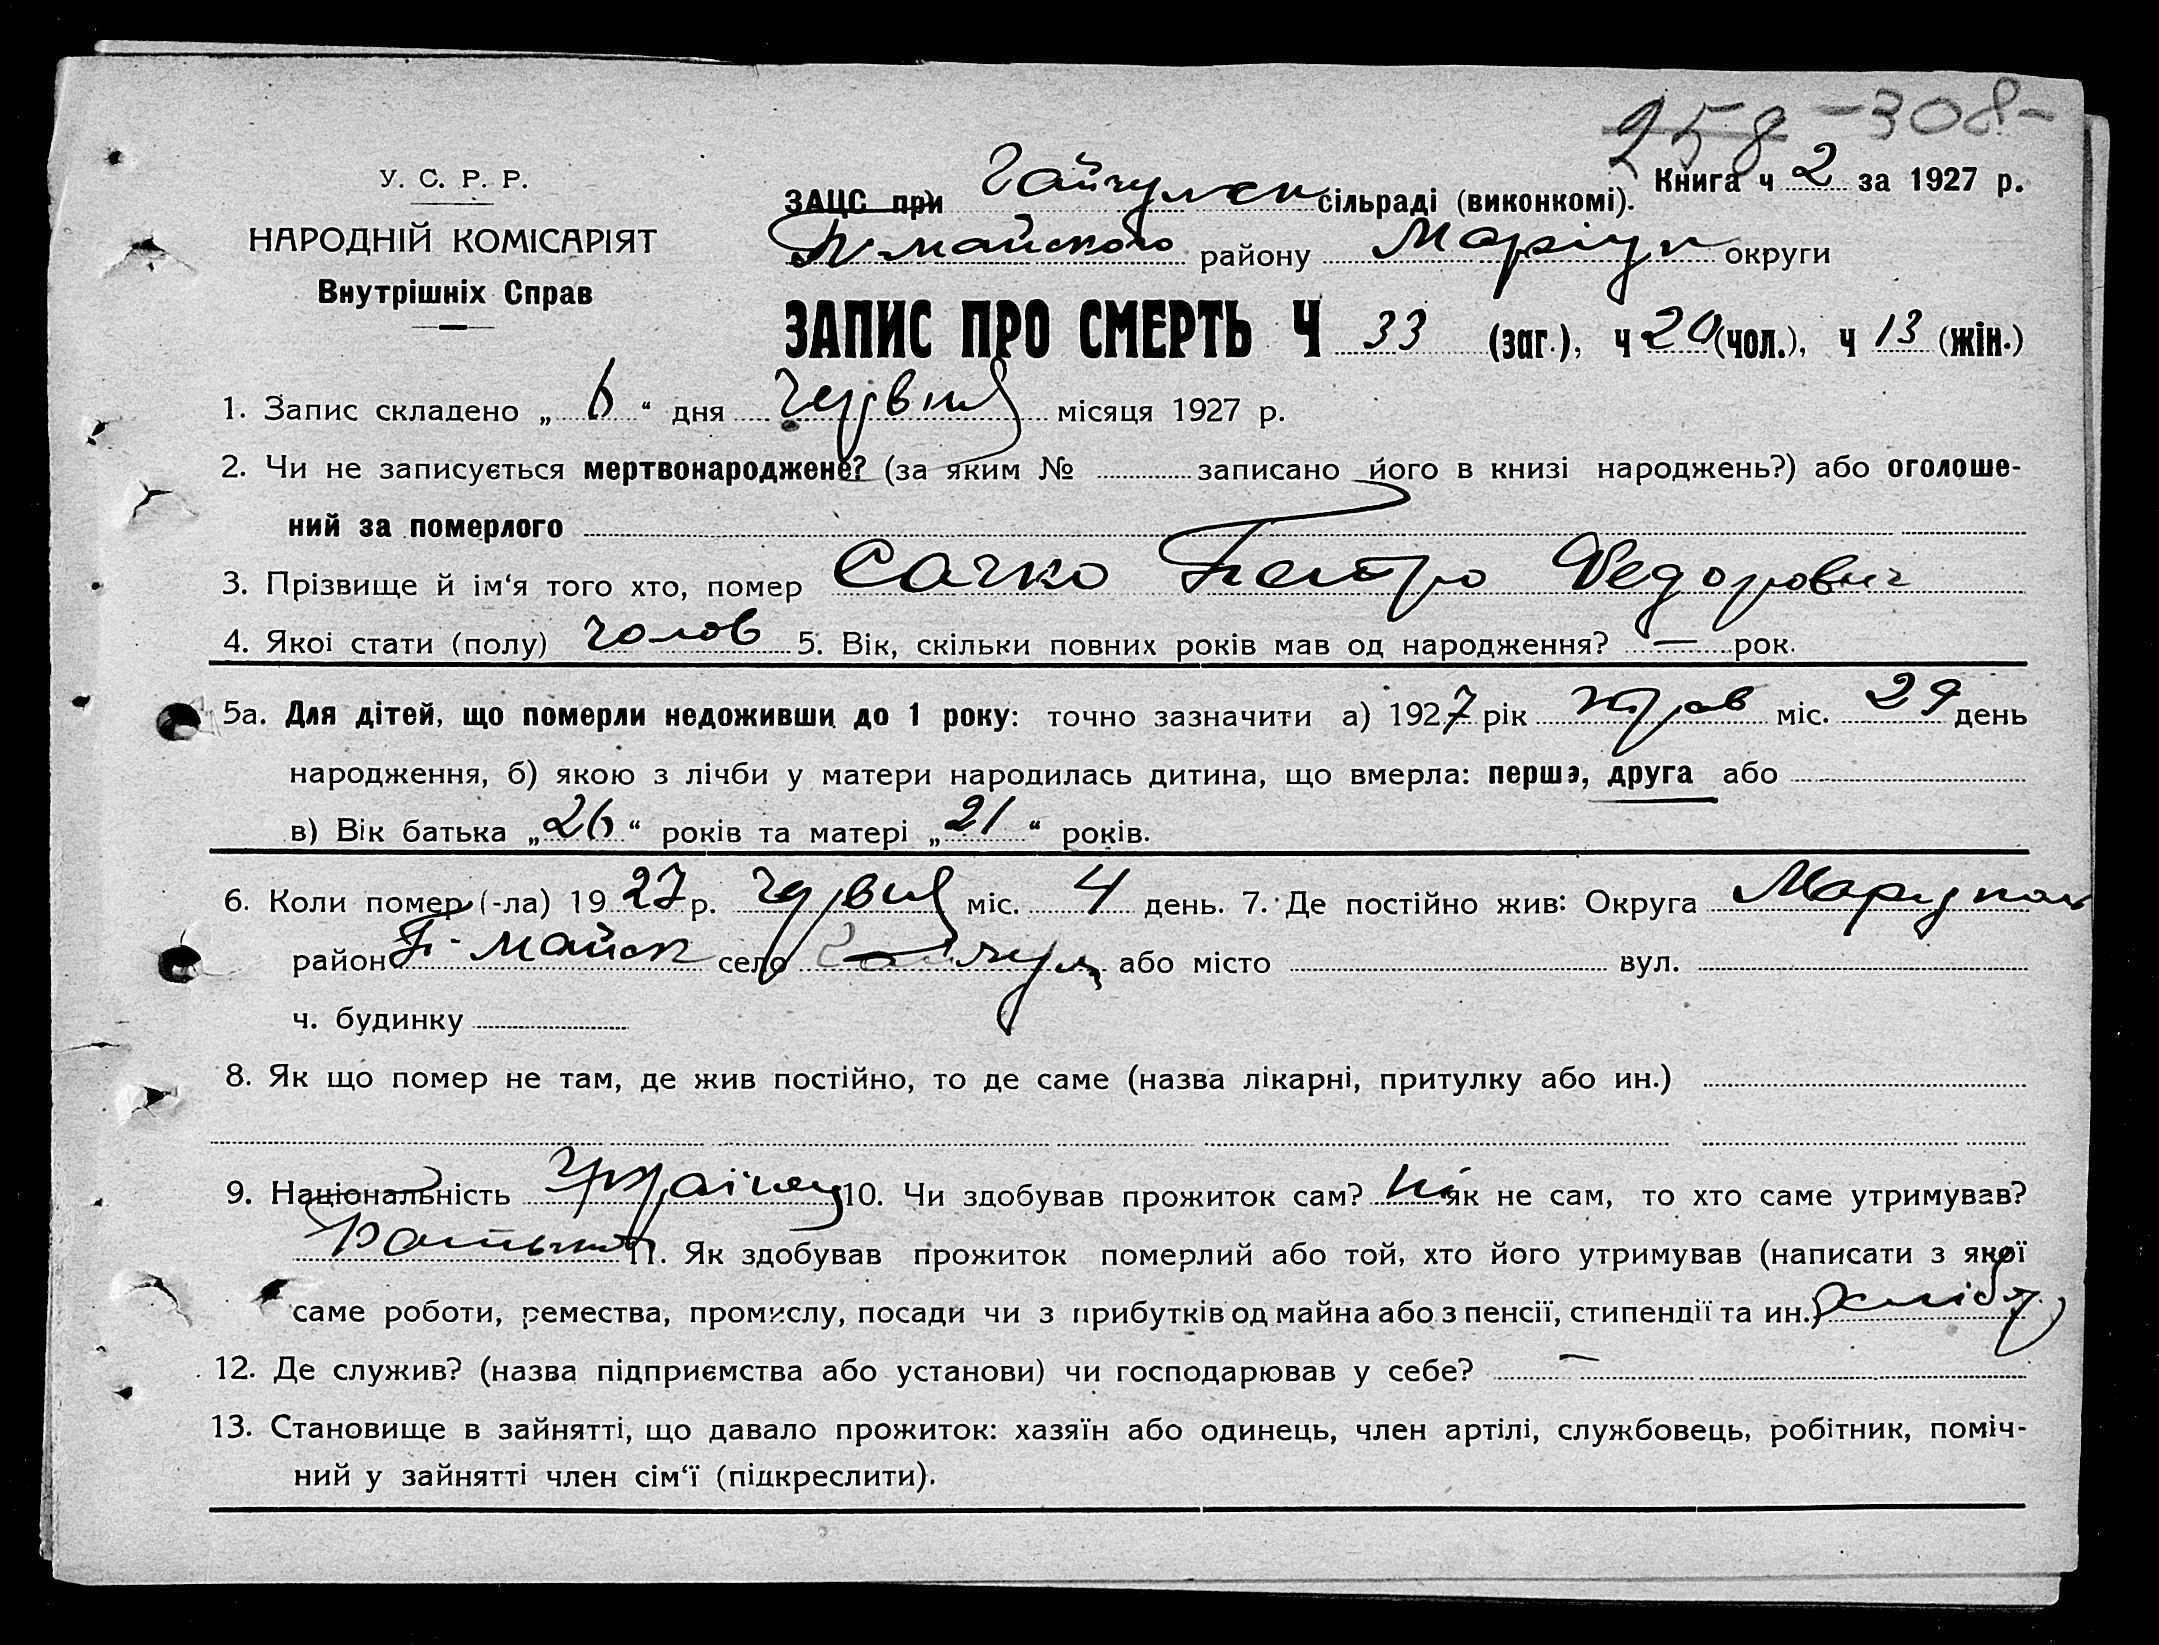 258 -308-
У. С. Р. Р.
НАРОДНІЙ КОМІСАРІЯТ
Внутрішніх Справ
Книга ч 2 за 1927 р.
ЗАЦС при Гайчулск сільраді (виконкомі).
П-майского району Маріуп округи
ЗАПИС ПРО СМЕРТЬ Ч 33 (заг.), ч 20 (чол.), ч 13 (жін.)
1. Запис складено „ 6 “ дня червня місяця 1927 р.
2. Чи не записується мертвонароджене? (за яким № записано його в книзі народжень?) або оголоше-
ний за померлого
3. Прізвище й ім‘я того хто, помер Сачко Петро Федорович
4. Якої стати (полу) чолов 5. Вік, скільки повних років мав од народження? — рок.
5а. Для дітей, що померли недоживши до 1 року: точно зазначити а) 1927 рік трав міс. 29 день
народження, б) якою з лічби у матери народилась дитина, що вмерла: перша, друга або
в) Вік батька „26“ років та матері „21“ років.
6. Коли помер (-ла) 1927 р. червня міс. 4 день. 7. Де постійно жив: Округа Маріуполь
район П-майск село Гайчул або місто вул.
ч. будинку
8. Як що помер не там, де жив постійно, то де саме (назва лікарні, притулку або ин.)
9. Національність Українец 10. Чи здобував прожиток сам? Ні як не сам, то хто саме утримував?
Батько 11. Як здобував прожиток померлий або той, хто його утримував (написати з якої
саме роботи, ремества, промислу, посади чи з прибутків од майна або з пенсії, стипендії та ин.)
12. Де служив? (назва підприємства або установи) чи господарював у себе? —
13. Становище в зайнятті, що давало прожиток: хазяїн або одинець, член артілі, службовець, робітник, поміч-
ний у зайнятті член сім‘ї (підкреслити).